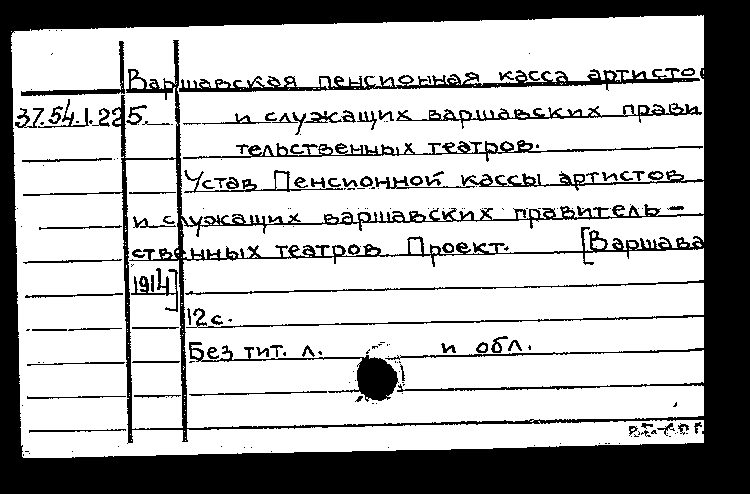 Варшавская пенсионная касса артистов
37.54.1.225. и служащих варшавских прави
тельственных театров.
Устав Пенсионной кассы артистов
и служащих варшавских правитель-
ственных театров Проект. [Варшава
1914]
12 с.
Без тит. л. и обл.